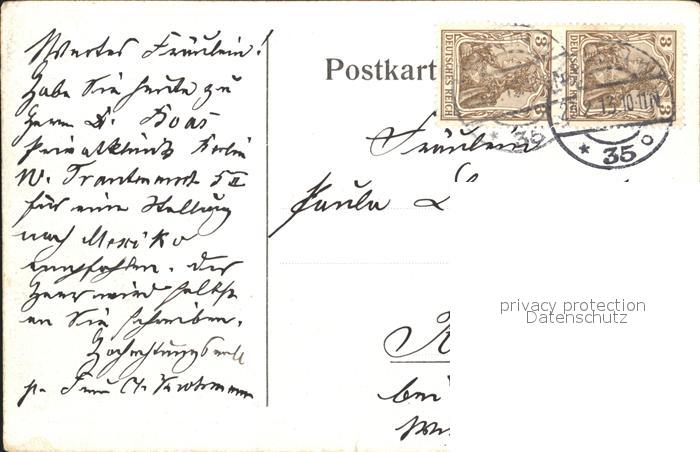 Wertes Fräulein!
Habe Sie heute zu
Herrn Dr. Boas
Privatklinik Berlin
W. Trautenaust 5 II
für eine Stellung
nach Mexiko
empfohlen. Der
Herr wird selbst
an Sie schreiben.
Hochachtungsvoll
p. Frau
Postkart
DEUTSCHES REICH
3
3
35
35
Fräulein
Paula
bei
privacy protection
Datenschutz